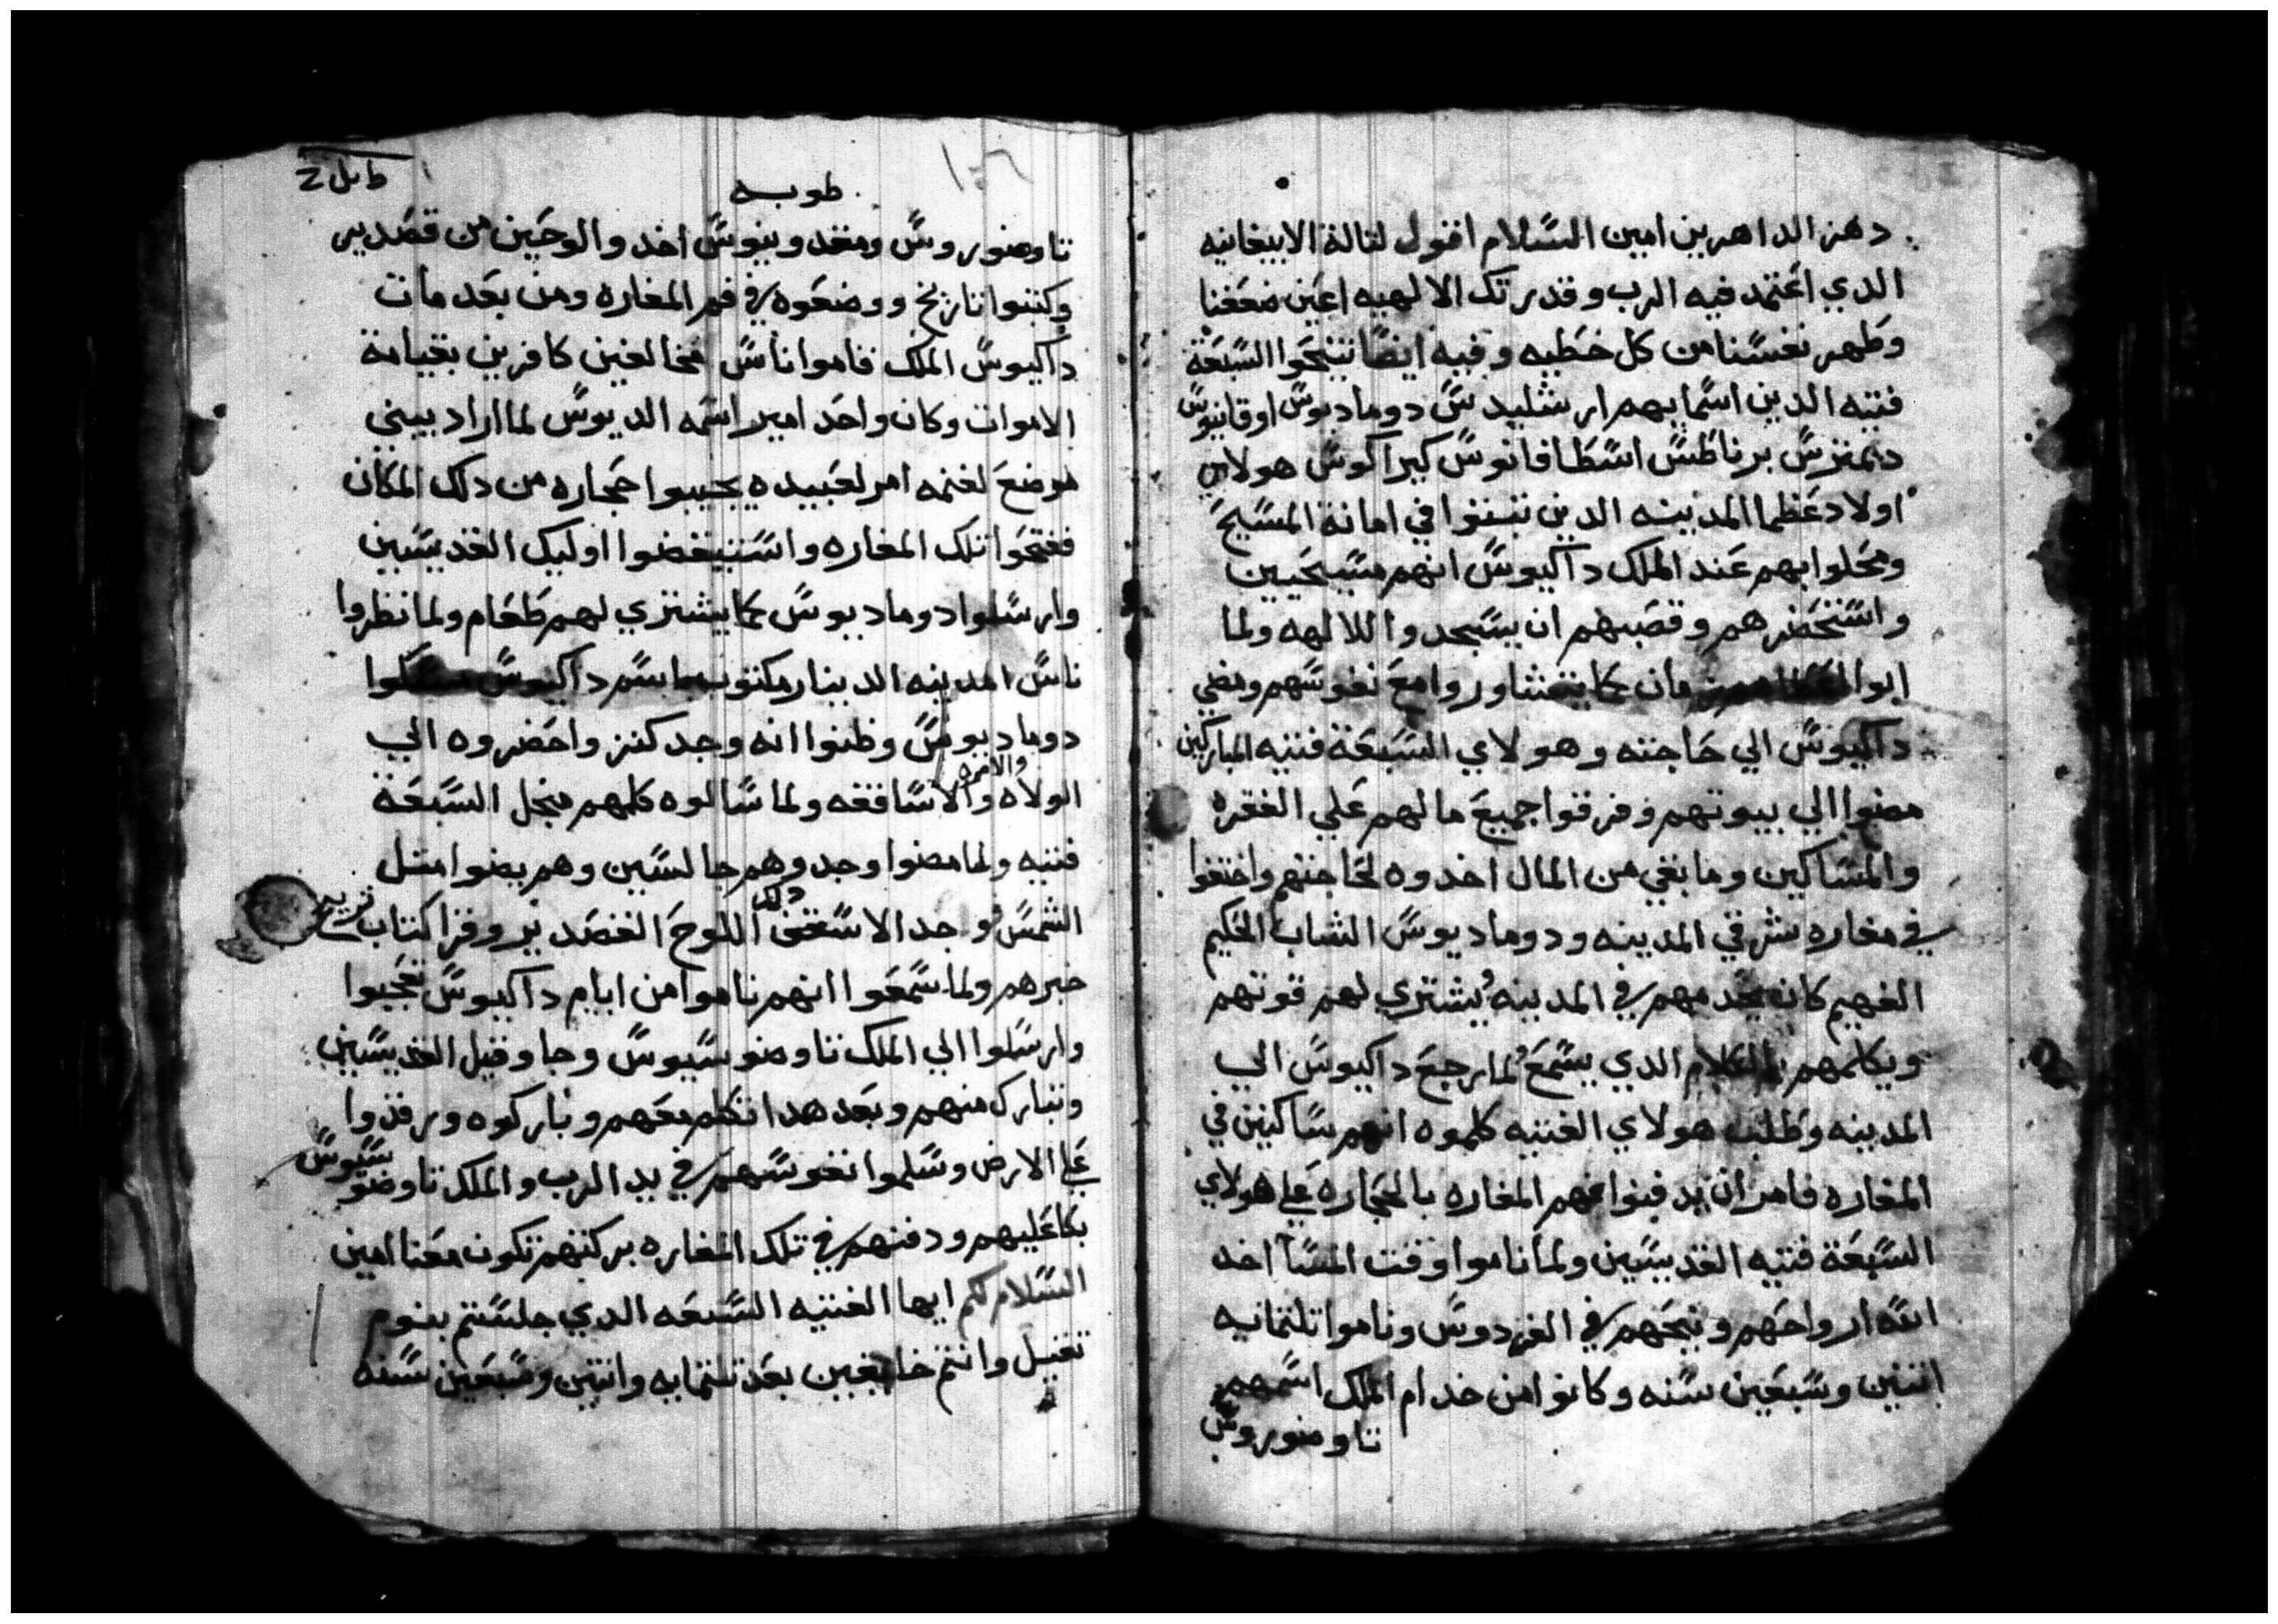 دهر الداهرين امين السلام اقول لتالة الابيفانيه
الدي اعتمد فيه الرب وقدرتك الالهيه اعين ضعفنا
وطهر نفسنا من كل خطيه وفيه ايضا تنيحوا السبعة
فتيه الدين اسمايهم ارشليدس دوماديوس اوقانيوس
ديمترس برناطس اسطافانوس كيراكوس هولاي
اولاد عظما المدينه الدين تبتوا في امانة المسيح
ومحلوا بهم عند الملك داكيوس انهم مسيحيين
واستحضرهم وقصبهم ان يسجدوا للالهه ولما
ابوا زمان كا يتشاوروا مع نفوسهم ومضي
داكيوس الي حاجته وهولاي السبعة فتيه المباركين
مضوا الي بيوتهم وفرقوا جميع مالهم علي الفقره
والمساكين وما بقي من المال اخدوه لحاجتهم واختفوا
في مغاره شرقي المدينه ودوماديوس الشاب الحكيم
الفهيم كان يخدمهم في المدينه ويشتري لهم قوتهم
ويكلمهم بالكلام الدي يسمع ولما رجع داكيوس الي
المدينه وطلب هولاي الفتيه كلموه انهم ساكنين في
المغاره فامر ان يدفنوا فم المغاره بالحجاره علي هولاي
السبعة فتيه القديسين ولما ناموا وقت المسا اخد
الله ارواحهم ونيحهم في الفردوس وناموا تلتمايه
اتنين وسبعين سنه وكانوا من خدام الملك اسمهم
تاوضوروس
طوبه
تاوضوروس ومنقدوينوس اخدوا لوحين من قصدير
وكتبوا تاريخ ووضعوه في فم المغاره ومن بعد مات
داكيوس الملك قاموا ناس مخالفين كافرين بقيامة
الاموات وكان واحد امير اسمه الديوس لما اراد يبني
موضع لغنمه امر لعبيده يجيبوا حجاره من دلك المكان
ففتحوا تلك المغاره واستيقضوا اوليك القديسين
وارسلوا دوماديوس كما يشتري لهم طعام ولما نظروا
ناس المدينه الدينار مكتوب باسم داكيوس مسكوا
دوماديوس وظنوا انه وجد كنز واحضروه الي
الولاه والامره والاساقفه ولما سالوه كلمهم منجل السبعة
فتيه ولما مضوا وجدوهم جالسين وهم يضوا متل
الشمس ووجد الاسقف دلك اللوح القصدير وقرا كتاب تاريخ
خبرهم ولما سمعوا انهم ناموا من ايام داكيوس تعجبوا
وارسلوا الي الملك تاوضوسيوس وجا وقبل القديسين
وتبارك منهم وبعد هدا تكلم معهم وباركوه ورقدوا
علي الارض وسلموا نفوسهم في يد الرب والملك تاوضوسيوس
بكا عليهم ودفنهم في تلك المغاره بركتهم تكون معنا امين
السلام لكم ايها الفتيه السبعه الدي جلستم بنوم
تقيل وانتم خايفين بعد تلتمايه واتنين وسبعين سنه